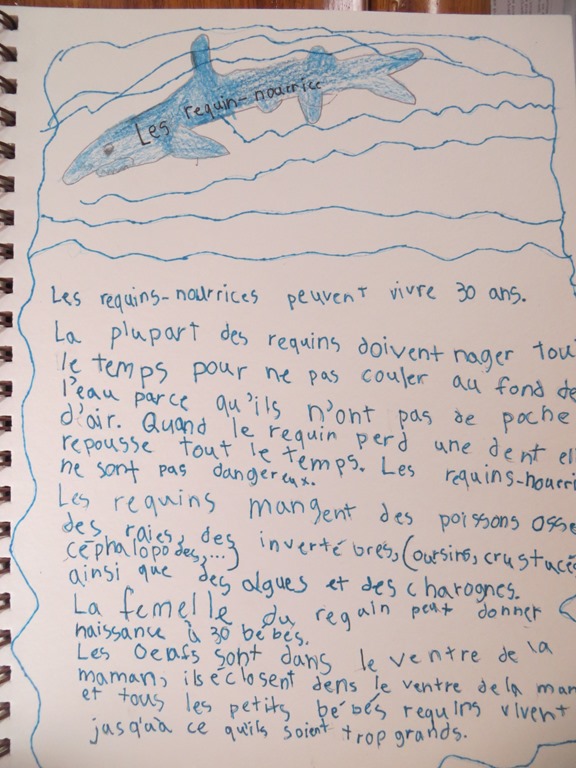 Les requin-nourrice
Les requins-nourrices peuvent vivre 30 ans.
La plupart des requins doivent nager tou
le temps pour ne pas couler au fond de
l'eau parce qu'ils n'ont pas de poche
d'air. Quand le requin perd une dent el
repousse tout le temps. Les requins-nourri
ne sont pas dangereux.
Les requins mangent des poissons osse
des raies, des invertébrés, (oursins, crustacé
céphalopodes,...)
ainsi que des algues et des charognes.
La femelle du requin peut donner
naissance à 30 bébés.
Les Oeufs sont dans le ventre de la
maman, ils éclosent dens le ventre de la mam
et tous les petits bébés requins vivent
jusqu'àa ce qu'ils soient trop grands.